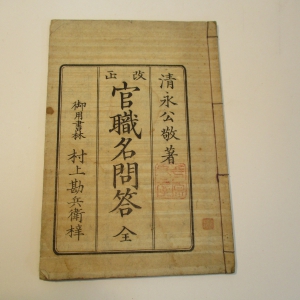 清永公敬著
改正
官職名問答 全
御用書林 村上勘兵衛梓